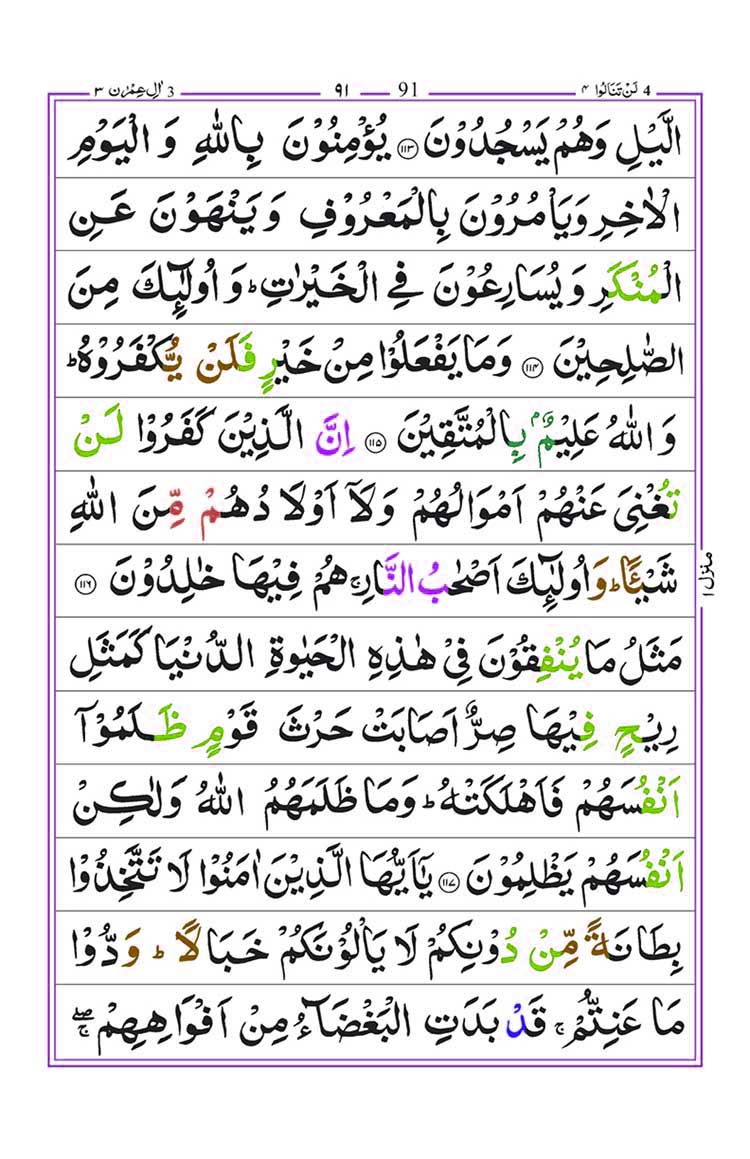 4 لَنْ تَنَالُوْا ٤ 91 ٩١ 3 اٰلِ عِمْرٰن ٣
الَّيْلِ وَهُمْ يَسْجُدُوْنَ ۝١١٣ يُؤْمِنُوْنَ بِاللّٰهِ وَ الْيَوْمِ
الْاٰخِرِ وَيَاْمُرُوْنَ بِالْمَعْرُوْفِ وَيَنْهَوْنَ عَنِ
الْمُنْكَرِ وَيُسَارِعُوْنَ فِي الْخَيْرٰتِ ؕ وَ اُولٰٓئِكَ مِنَ
الصّٰلِحِيْنَ ۝١١٤ وَمَا يَفْعَلُوْا مِنْ خَيْرٍ فَلَنْ يُّكْفَرُوْهُ ؕ
وَ اللّٰهُ عَلِيْمٌۢ بِالْمُتَّقِيْنَ ۝١١٥ اِنَّ الَّذِيْنَ كَفَرُوْا لَنْ
تُغْنِيَ عَنْهُمْ اَمْوَالُهُمْ وَلَاۤ اَوْلَادُهُمْ مِّنَ اللّٰهِ
شَيْـًٔا ؕ وَاُولٰٓئِكَ اَصْحٰبُ النَّارِ ۚ هُمْ فِيْهَا خٰلِدُوْنَ ۝١١٦
مَثَلُ مَا يُنْفِقُوْنَ فِيْ هٰذِهِ الْحَيٰوةِ الدُّنْيَا كَمَثَلِ
رِيْحٍ فِيْهَا صِرٌّ اَصَابَتْ حَرْثَ قَوْمٍ ظَلَمُوْۤا
اَنْفُسَهُمْ فَاَهْلَكَتْهُ ؕ وَمَا ظَلَمَهُمُ اللّٰهُ وَلٰكِنْ
اَنْفُسَهُمْ يَظْلِمُوْنَ ۝١١٧ يٰۤاَيُّهَا الَّذِيْنَ اٰمَنُوْا لَا تَتَّخِذُوْا
بِطَانَةً مِّنْ دُوْنِكُمْ لَا يَاْلُوْنَكُمْ خَبَالًا ؕ وَدُّوْا
مَا عَنِتُّمْ ۚ قَدْ بَدَتِ الْبَغْضَآءُ مِنْ اَفْوَاهِهِمْ ۖۚ
منزل ١